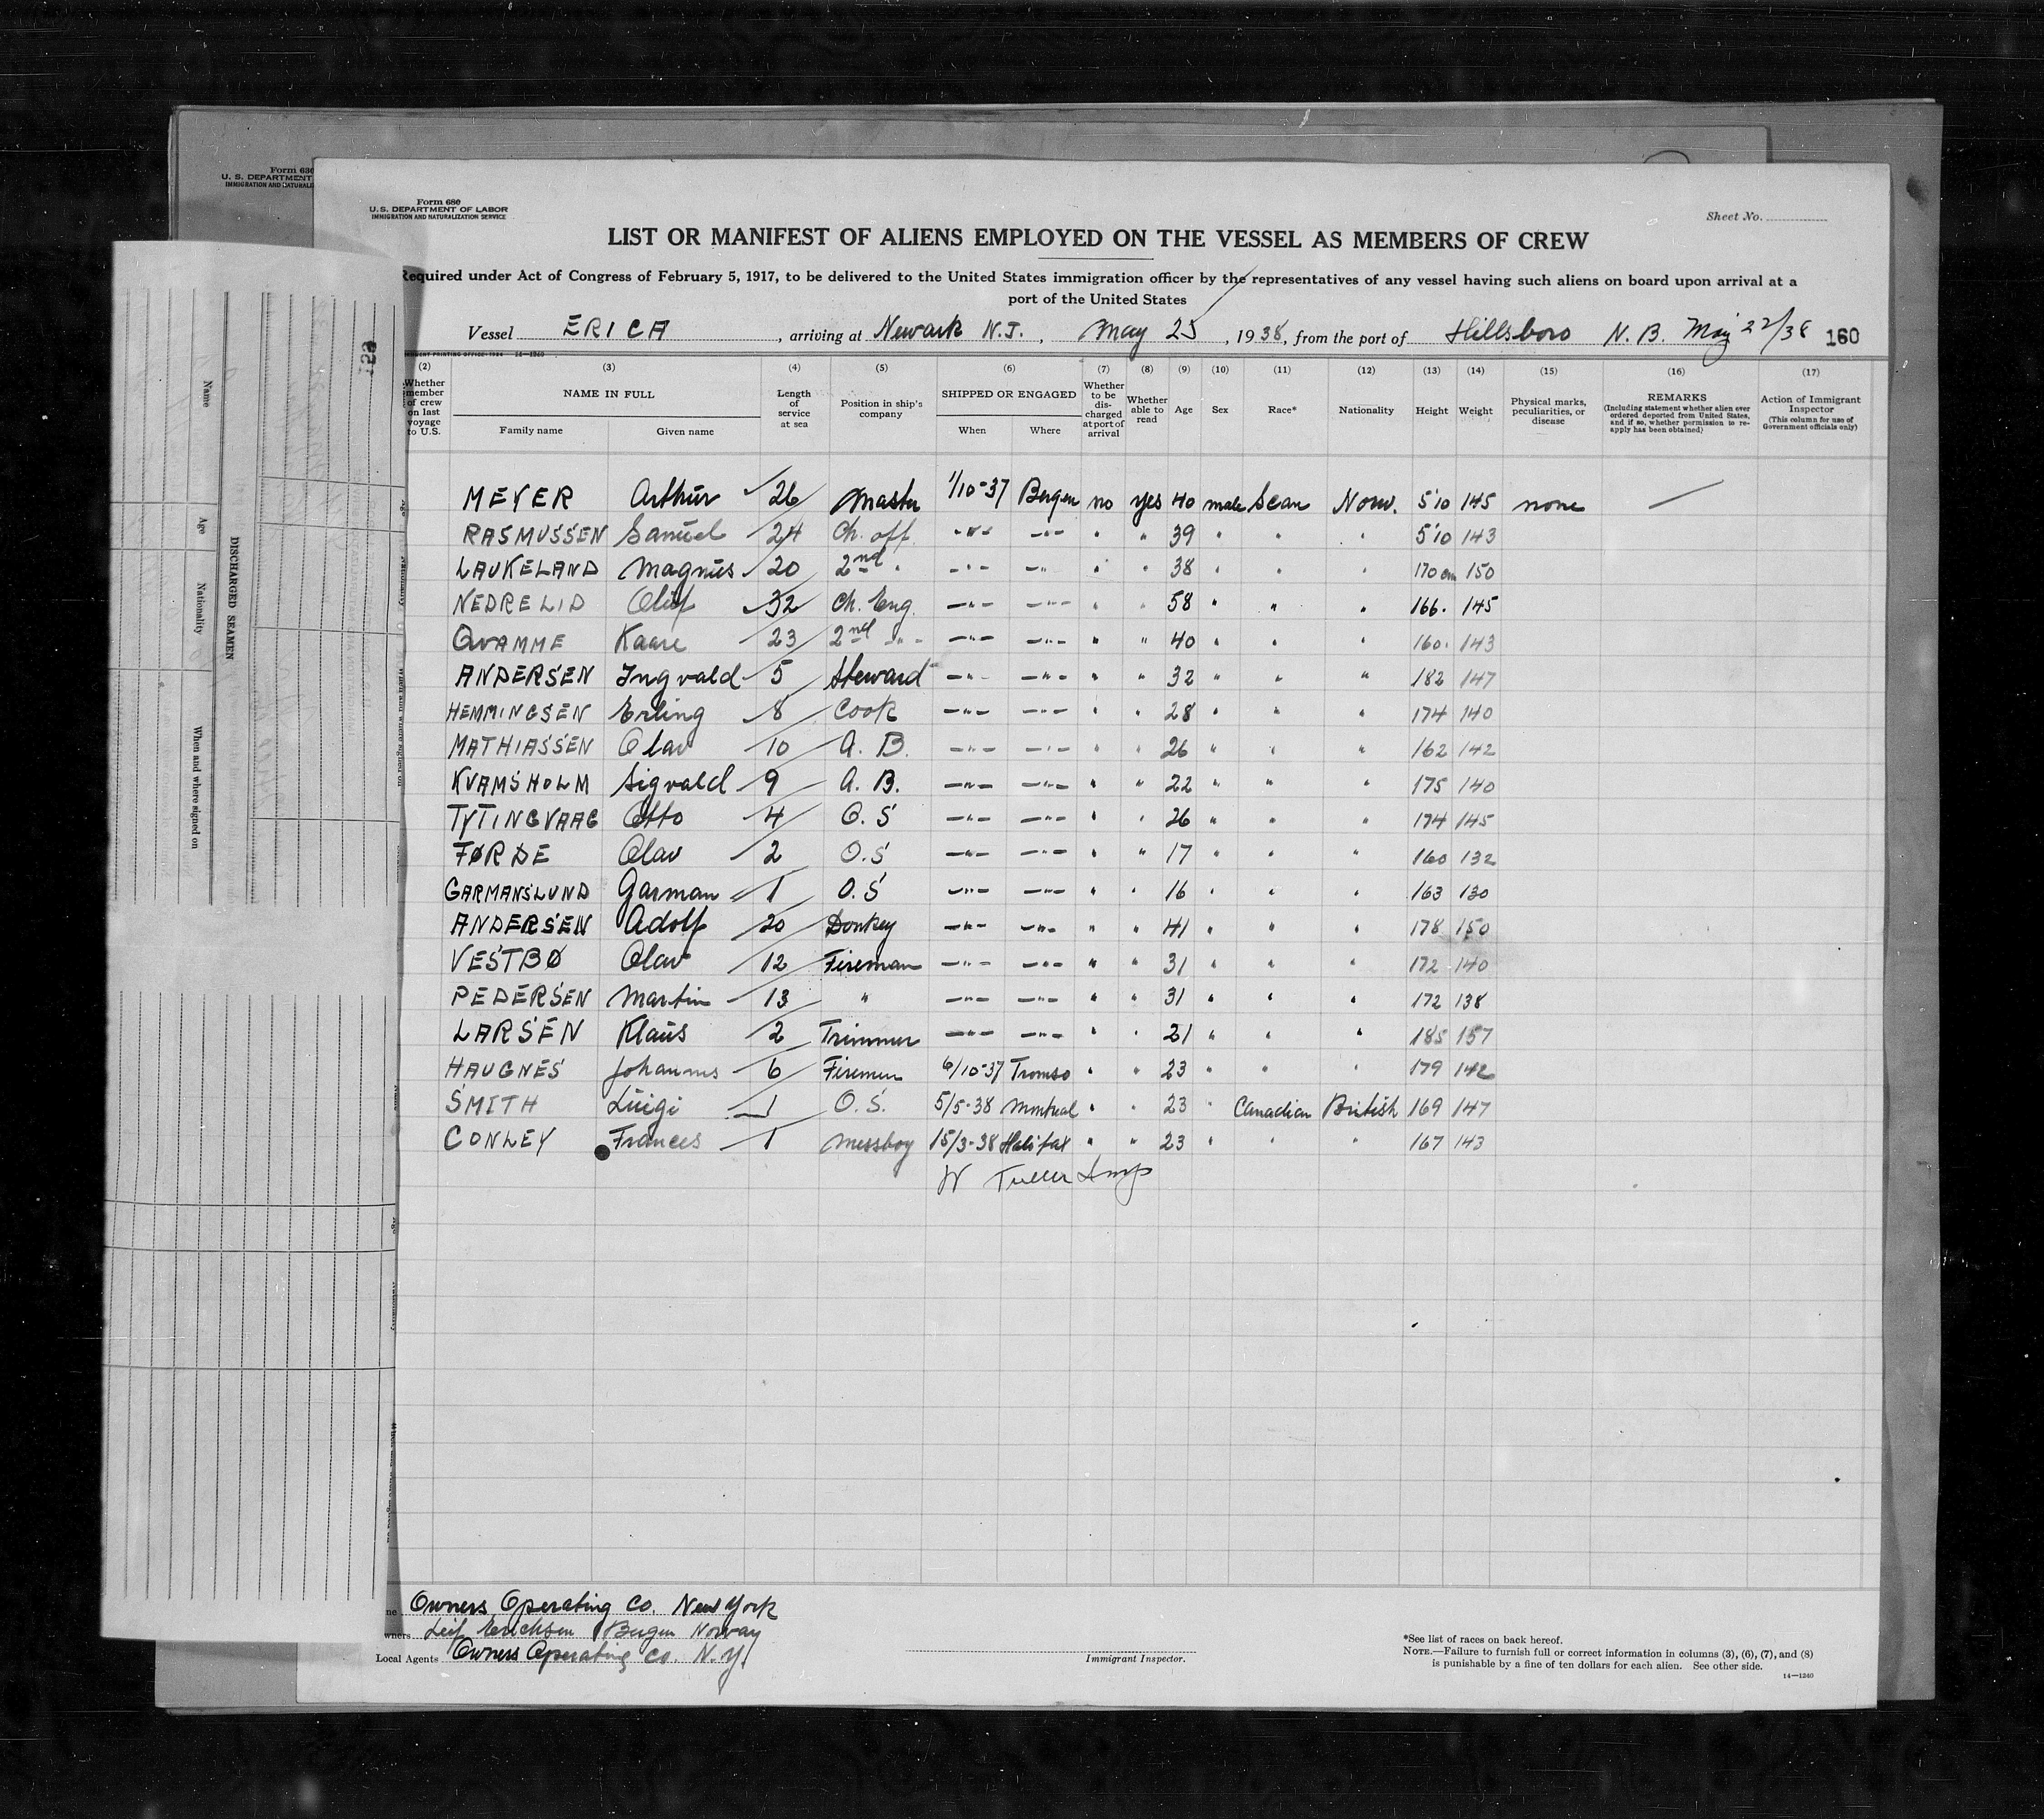 Form 630
U. S. DEPARTMENT
IMMIGRATION AND NATURALI
Form 680
U. S. DEPARTMENT OF LABOR
IMMIGRATION AND NATURALIZATION SERVICE
Sheet No.
LIST OR MANIFEST OF ALIENS EMPLOYED ON THE VESSEL AS MEMBERS OF CREW
Required under Act of Congress of February 5, 1917, to be delivered to the United States immigration officer by the representatives of any vessel having such aliens on board upon arrival at a
port of the United States
Vessel ERICA, arriving at Newark N.J., May 25, 1938, from the port of Hillsboro N. B. May 22/38 160
(2) (3) (4) (5) (6) (7) (8) (9) (10) (11) (12) (13) (14) (15) (16) (17)
Whether member of crew on last voyage to U.S.
NAME IN FULL
Family name
Given name
Length of service at sea
Position in ship's company
SHIPPED OR ENGAGED
When
Where
Whether to be discharged at port of arrival
Whether able to read
Age
Sex
Race*
Nationality
Height
Weight
Physical marks, peculiarities, or disease
REMARKS
(Including statement whether alien ever ordered deported from United States, and if so, whether permission to reapply has been obtained)
Action of Immigrant Inspector
(This column for use of Government officials only)
MEYER Arthur 26 Master 1/10-37 Bergen no yes 40 male Scan Norw. 5'10 145 none —
RASMUSSEN Samuel 24 Ch. off. -"- -"- " " 39 " " " 5'10 143
LAUKELAND Magnus 20 2nd " -"- -"- " " 38 " " " 170 cm 150
NEDRELID Oluf 32 Ch. Eng. -"- -"- " " 58 " " " 166. 145
QVAMME Kaare 23 2nd -"- -"- -"- " " 40 " " " 160. 143
ANDERSEN Ingvald 5 Steward -"- -"- " " 32 " " " 182 147
HEMMINGSEN Erling 8 Cook -"- -"- " " 28 " " " 174 140
MATHIASSEN Olav 10 A. B. -"- -"- " " 26 " " " 162 142
KVAMSHOLM Sigvald 9 A. B. -"- -"- " " 22 " " " 175 140
TYTINGVAAG Otto 4 O. S -"- -"- " " 26 " " " 174 145
FØRDE Olav 2 O. S -"- -"- " " 17 " " " 160 132
GARMANSLUND Garman 1 O. S -"- -"- " " 16 " " " 163 130
ANDERSEN Adolf 20 Donkey -"- -"- " " 41 " " " 178 150
VESTBØ Olav 12 Fireman -"- -"- " " 31 " " " 172 140
PEDERSEN Martin 13 " -"- -"- " " 31 " " " 172 138
LARSEN Klaus 2 Trimmer -"- -"- " " 21 " " " 185 157
HAUGNES Johannes 6 Firemen 6/10-37 Tromso " " 23 " " " 179 142
SMITH Luigi 1 O. S. 5/5-38 Montreal " " 23 " Canadian British 169 147
CONLEY Frances 1 Messboy 15/3-38 Halifax " " 23 " " " 167 143
W Tuller Insp
Owners Operating Co. New York
Leif Erichsen Bergen Norway
Local Agents Owners Operating Co. N.Y.
Immigrant Inspector.
*See list of races on back hereof.
NOTE.—Failure to furnish full or correct information in columns (3), (6), (7), and (8)
is punishable by a fine of ten dollars for each alien. See other side.
14—1240
DISCHARGED SEAMEN
Name
Age
Nationality
When and where signed on